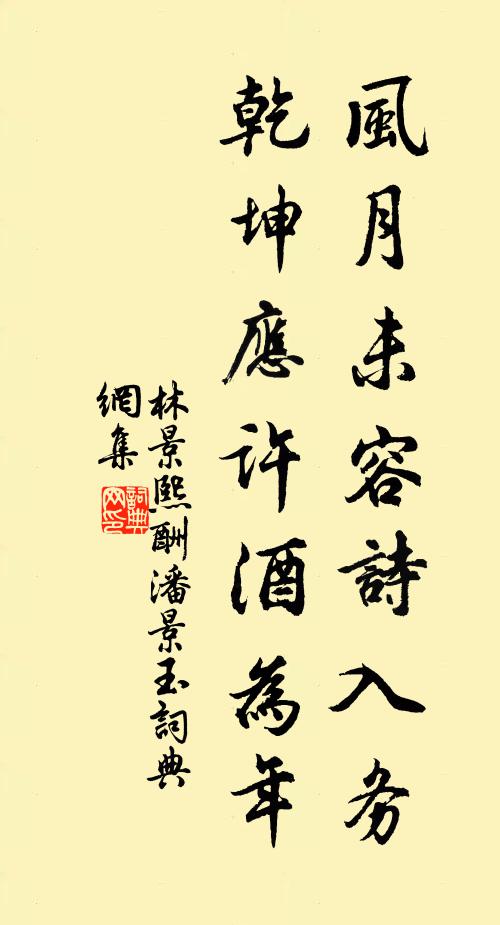 風月未容詩入务
乾坤應許酒為年
林景熙酬潘景玉詞典
網集
詞典
网印